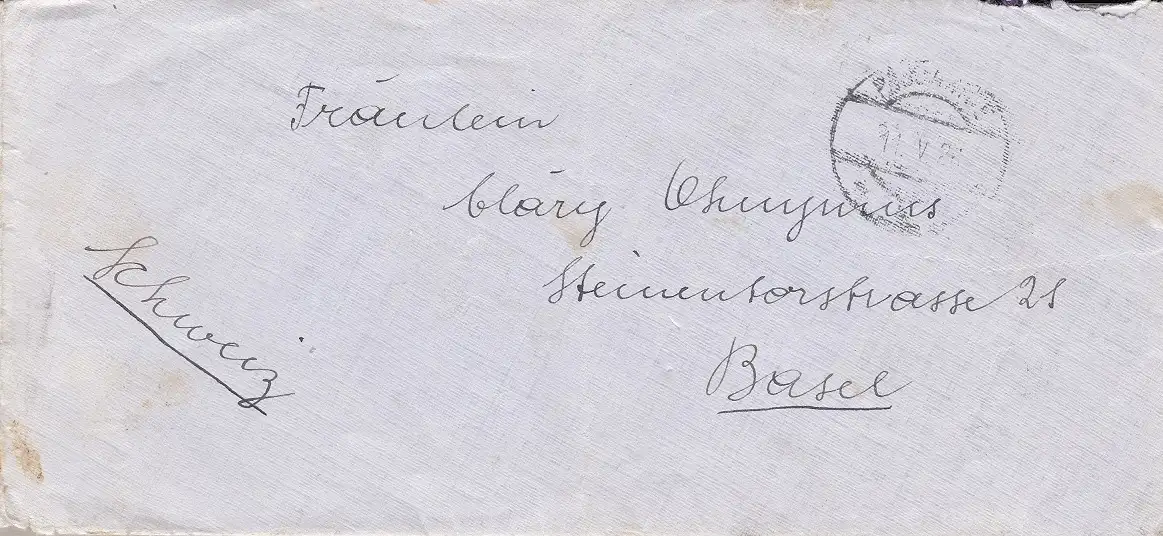 Fräulein
Cläry Ohnymus
Steinentorstrasse 21
Basel
Schweiz